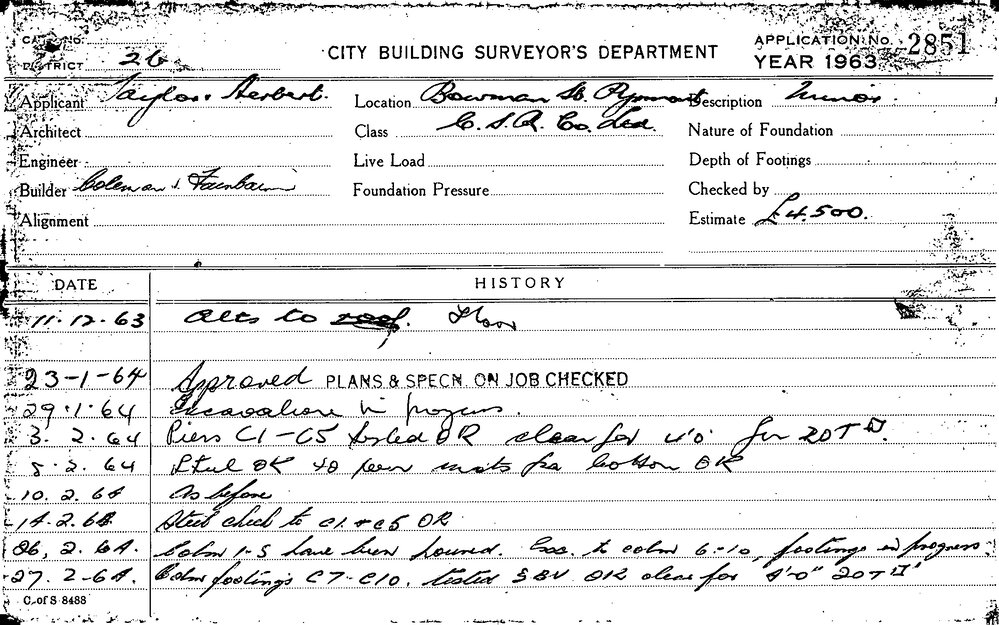 CITY BUILDING SURVEYOR'S DEPARTMENT
APPLICATION No. 2851
YEAR 1963
DISTRICT 26
Applicant Taylor Herbert.
Location Bowman St. Pyrmont
Description Minor.
Architect
Class C.S.R. Co. Ltd.
Nature of Foundation
Engineer
Live Load
Depth of Footings
Builder Coleman & Fairbairn
Foundation Pressure
Checked by
Alignment
Estimate £4,500.
DATE HISTORY
11.12.63 Alts to roof. Floor
23-1-64 Approved PLANS & SPECN. ON JOB CHECKED
29.1.64 Excavation in progress.
3.2.64 Piers C1-C5 tested OK clear for 4'0" for 20T □'.
5.2.64 Steel OK to pour mats for bottom OK
10.2.64 As before
14.2.64 Steel check to C1 + C5 OK
26.2.64. Colm 1-5 have been poured. Exc. to colm 6-10, footings in progress
27.2-64. Colm footings C7-C10. tested OK clear for 4'0" 20T □'
C. of S 8488